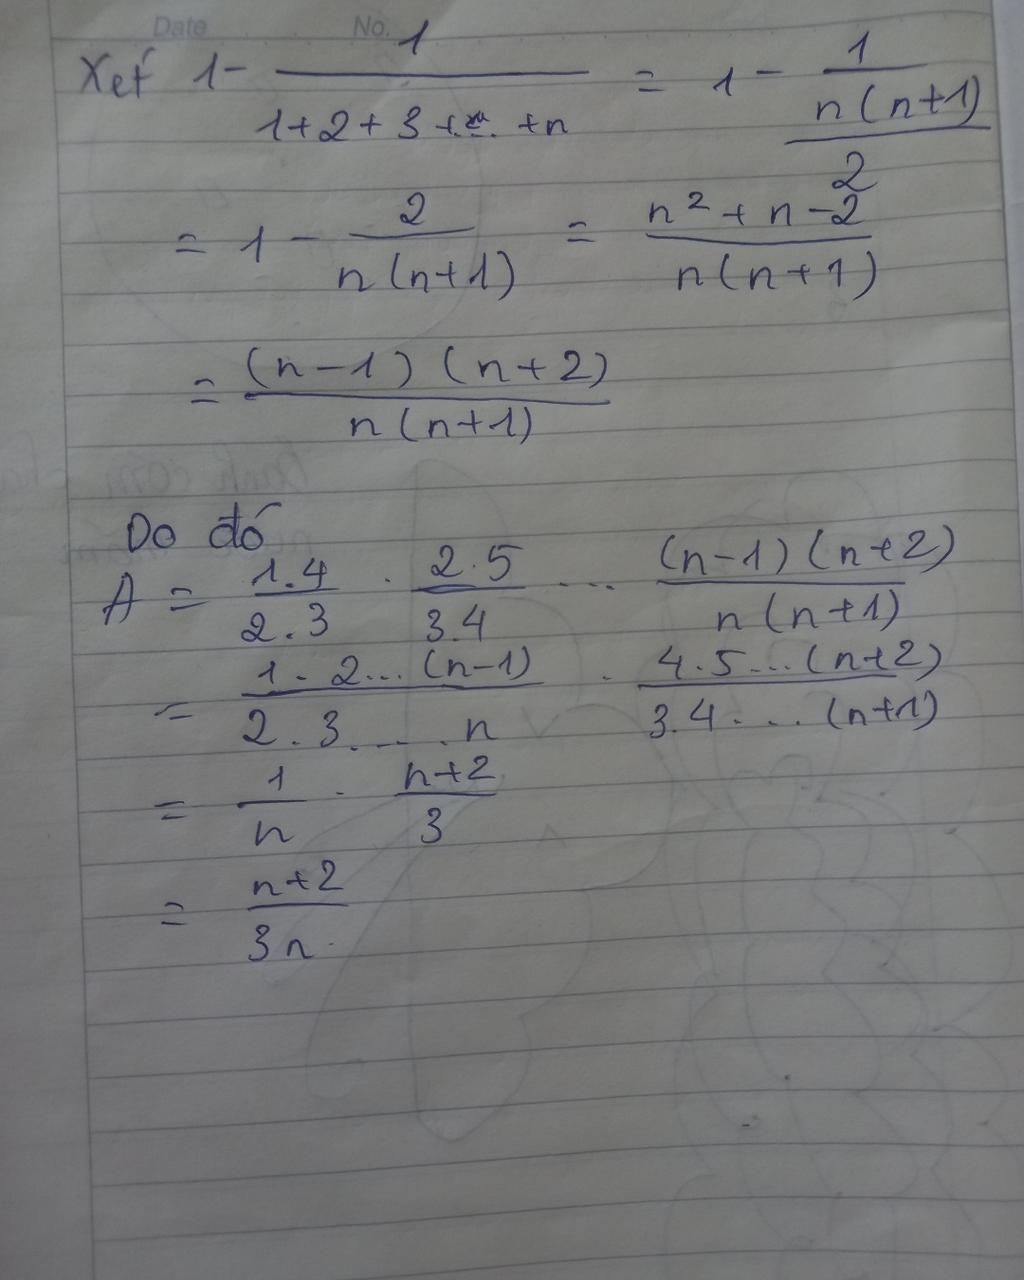 Date No.
Xét 1 - 1/(1+2+3+...+n) = 1 - 1/(n(n+1)/2)
= 1 - 2/(n(n+1)) = (n²+n-2)/(n(n+1))
= ((n-1)(n+2))/(n(n+1))
Do đó
A = (1.4)/(2.3) . (2.5)/(3.4) ... ((n-1)(n+2))/(n(n+1))
= (1.2...(n-1))/(2.3.....n) . (4.5...(n+2))/(3.4....(n+1))
= 1/n . (n+2)/3
= (n+2)/(3n)